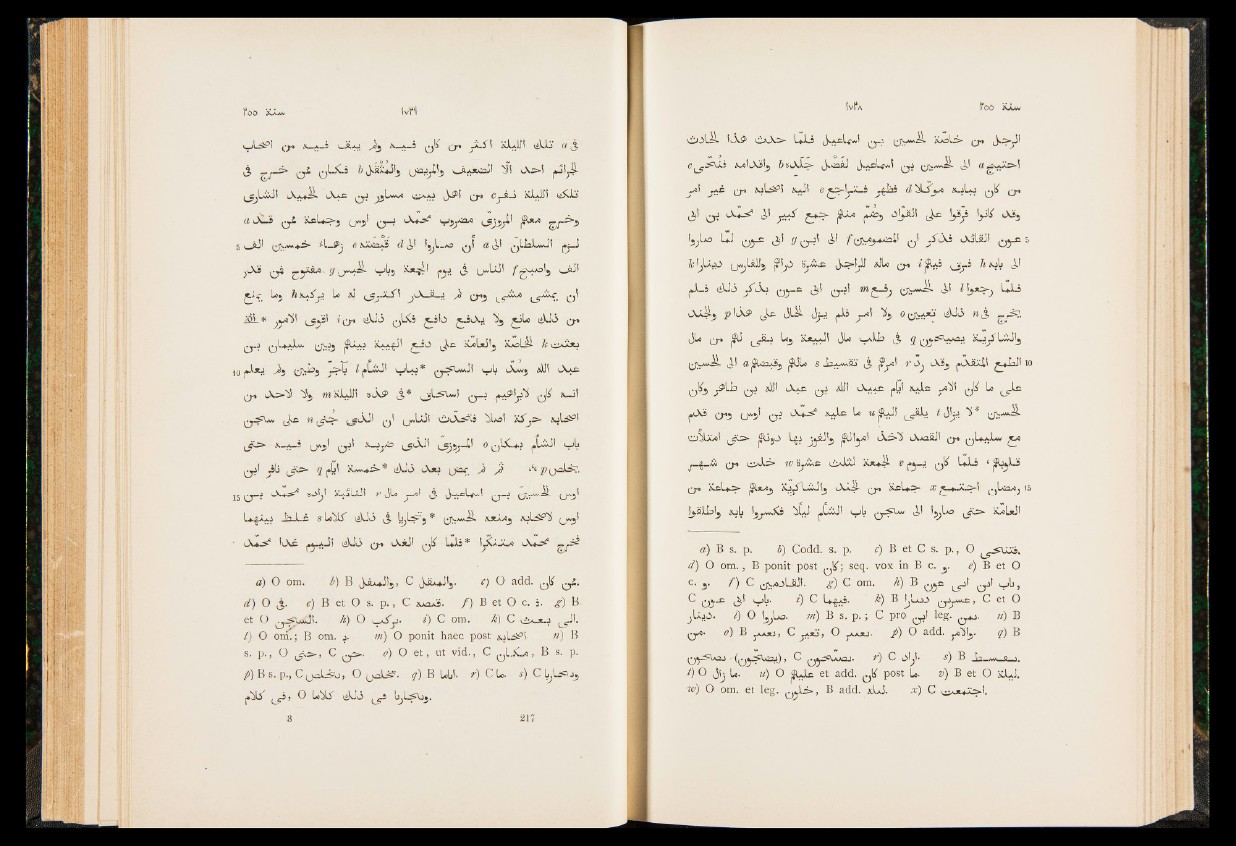 سنة ٢٥٥ ١٧٣٨
الرجل من خاصّة الحسين بن اسماعيل فلمّا حدث هذا الحادث
احتيج a الى الحسين بن اسماعيل لفضل جلده b واقدامه فنحّى c
من كان ببابه موكّلا d فظهر فتراجع e اليه اصحابه من غير امر
وقد كانوا فرّقوا على القوّاد وضمّ منهم جمع كبير الى محمّد بن ابى
5 عون القائد فذكر ان المضمومين f الى ابن g ابى عون لمّا صاروا
الى بابه h فرق فيهم i من ماله للراجل عشرة دراهم وللفارس دينارا k
فلمّا رجعوا l الى الحسين رفع m ابن ابى عون يذكر ذلك فلم
يخرج n فى ذلك تعيين o ولا امر فلم يزل الحال على هذا p والجند
والشاكريّة يصيحون q فى طلب مال البيعة وما بقى لهم من مال
10 الطمع المتقدّم وقد ردّ r امرهم فى تقسيط s مالهم وقبضهم a الى الحسين
على ما كان الامر عليه ايّام عبيد الله بن عبد الله بن طاهر وكان
الحسين *لا يزال t يلقى اليهم u ما عليه محمّد بن اوس ومن قدم
مع سليمان من القصد لاخذ اموالهم والفوز بها دونهم حتى امتلأت
قلوبهم، فلمّا كان يوم v الجمعة لثلث عشرة w خلت من شهر
15 رمضان اجتمع x جماعة من الجند والشاكريّة ومعهم جماعة من
العامّة حتى صاروا الى سجن باب الشأم ليلا فكسروا بابه واطلقوا
a) B s. p. b) Codd. s. p. c) B et C s. p., O
d) O om., B ponit post كان; seq. vox in B c. و. e) B et O
c. و. f) C g) C om. h) B باب ابن ابى عون,
C باب ابى عون. i) C فيهما. k) B C et O
دينار. l) O صاروا. m) B s. p.; C pro ابن leg. من. n) B
من. o) B C O p) O add. والامر. q) B
C r) C ازال. s) B
t) O ما زال. u) O عليهم et add. كان post ما. v) B et O ليلة.
w) O om. et leg. خلون, B add. ليلة. x) C اجتمعت.
سنة ٢٥٥ ١٧٣٩
فى a تلك الليلة اكثر من كان فيه ولم يبق فيه من اصحاب
الجرائم احد الّا الضعيف والمريض والمثقل b فكان ممّن خرج فى
تلك الليلة نفر c من اهل بيت مساور بن عبد الحميد الشارى
وخرج معهم المروزى مضروب محمّد بن اوس وجماعة ممّن قد a
5 لزم السلطان الى a أن صاروا الى d قبضته e زهاء خمسين الف
الف واصبح f الناس فى يوم الجمعة وباب الحبس g مفتوح فمن قدر
ان يمشى مشى ومن لم يقدر اكترى له ما يركبه h وما يمنع
من ذلك مانع ولا يدفع دافع فكان ذلك من i اقوى الامور *التى
بعثت k الخاصّة والعامّة على دفع الهيبة بينهم وبين سليمان بن
10 عبد الله وسدّ باب السجن *بباب الشأم l بآجرّ وطين ولم يعلم
انه كان لابراهيم بن اسحاق *فى هذه الليلة m ولا لاحد من
اصحابه حركة اصلا فتحدّث الناس ان الذى جنى n على سجن
باب الشأم بمكان o المروزى الذى ضربه ابن اوس فيه حتى
يخلص p، ثم لم يمض بعد ذلك *خمسة ايّام q حتى نافر ابن
15 اوس الحسين بن اسماعيل فى امر مال r النائبة اراده محمّد بن
اوس لاصحابه ومنعه الحسين *وتجاريا فى ذلك كلاما s غلظ بينهما
فخرج محمّد متنكّرا *فلمّا كان الغد من ذلك اليوم غدا محمّد
a) O om. b) B C c) O add. كان ممّن.
d) O فى. e) B et O s. p., C f) B et O c. ف. g) B
et O السجن. h) O يركب. i) C om. k) C
l) O om.; B om. ب. m) O ponit haec post اصحابه n) B
s. p., O C o) O et, ut vid., C مكان, B s. p.
p) B s. p., C O q) B اياما. r) C ما. s) C
فى كلام, O وتجاريا فى ذلك كلاما.
8 217